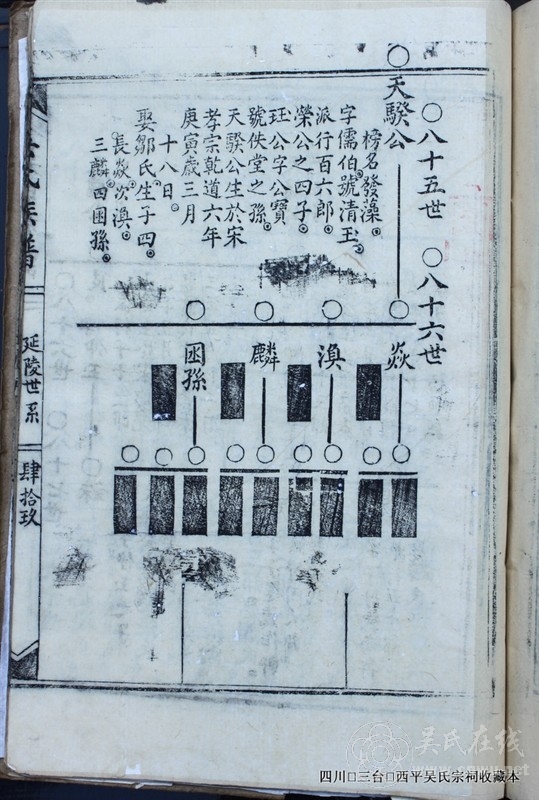 ○八十五世 ○八十六世
○天騤公
榜名發藻
字儒伯號清玉
派行百六郎
榮公之四子
珏公字公寶
號佚堂之孫
天騤公生於宋
孝宗乾道六年
庚寅歲三月
十八日
娶鄒氏生子四
長焱次滇
三麟四困孫
焱
滇
麟
困孫
氏族譜
延陵世系
肆拾玖
吴氏在线
www.cnwu.net
四川□三台□西平吴氏宗祠收藏本